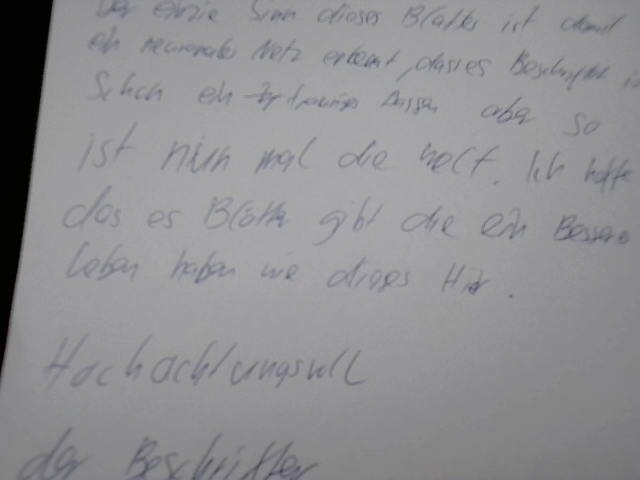 Der einzie Sinn dieses Blattes ist damit
ein neuronales Netz erkennt, das es Beschriftet
Schon ein trauriges Dassen aber so
ist nun mal die welt. Ich hoffe
das es Blätter gibt die ein Besseres
leben haben wie dieses Hier.
Hochachtungsvoll
der Beschrifter